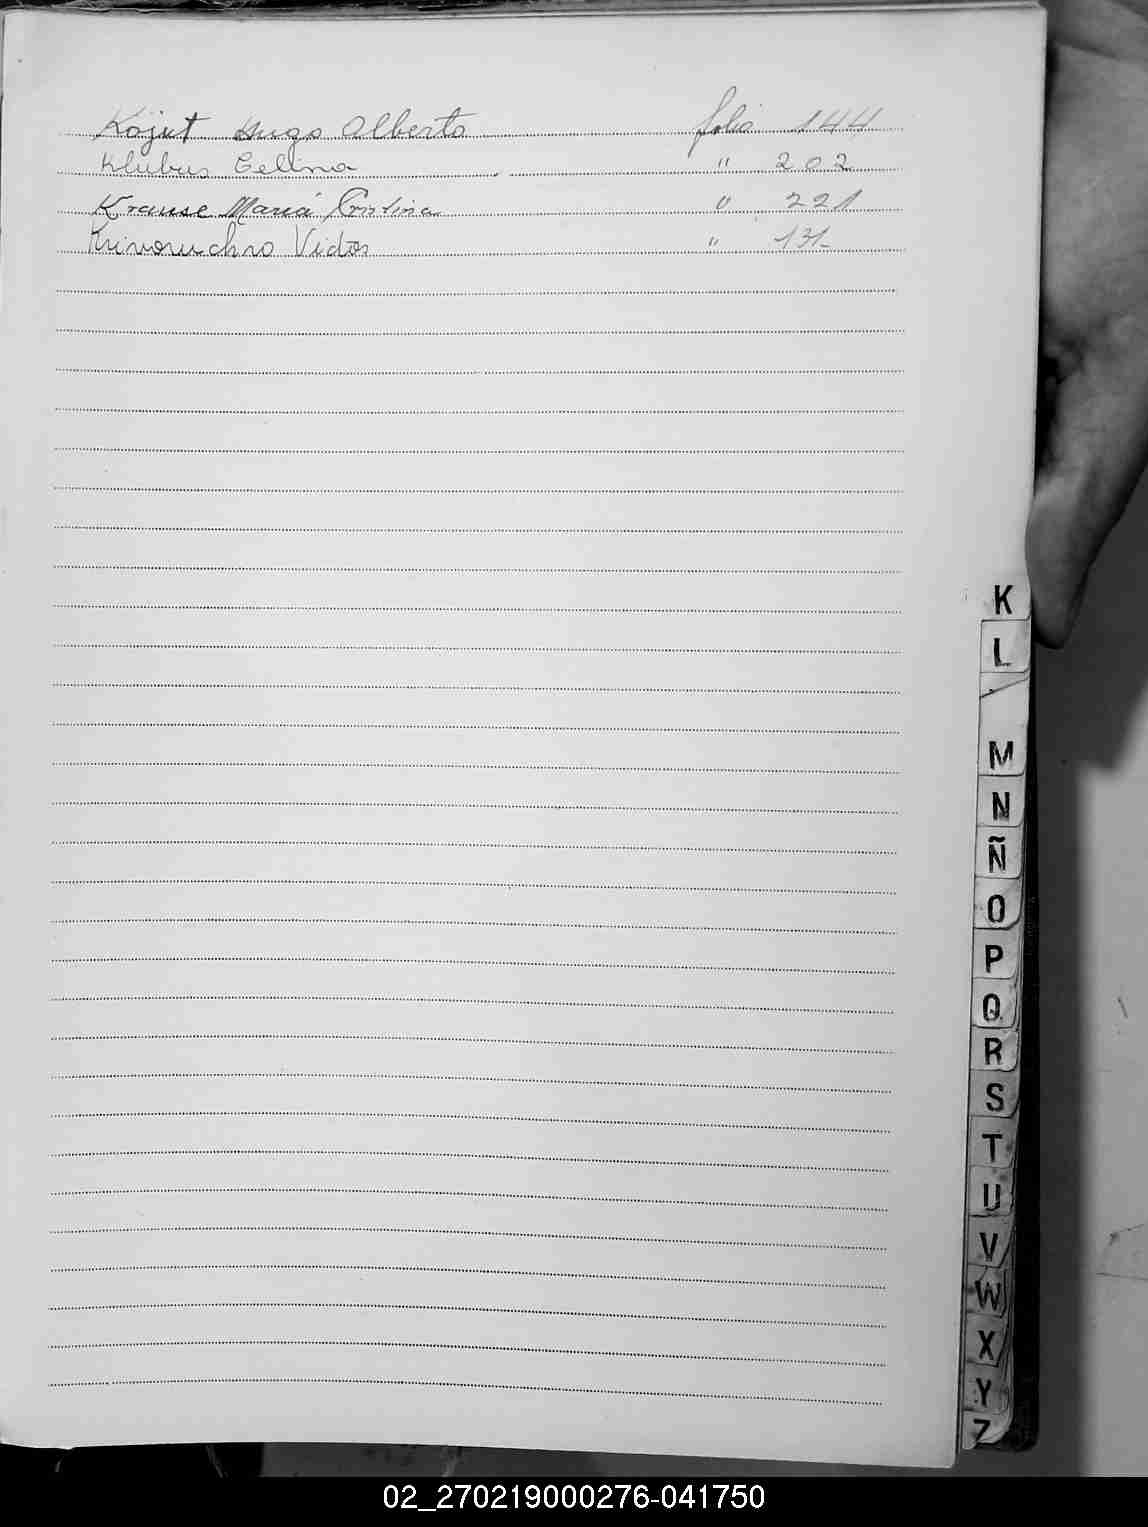 Kojut Hugo Alberto folio 144
Klubus Celina " 202
Krause María Cristina " 221
Krivoruchro Victor " 131
K
L
M
N
Ñ
O
P
Q
R
S
T
U
V
W
X
Y
Z
02_270219000276-041750